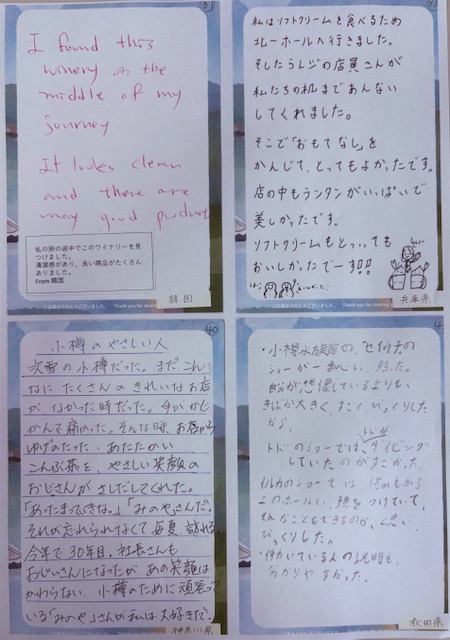 I found this
winery on the
middle of my
journey
It looks clean
and there are
many good product
私の旅の途中でこのワイナリーを見
つけました。
清潔感があり、良い商品がたくさん
ありました。
From 韓国
韓国
私はソフトクリームを食べるため
北一ホールへ行きました。
そしたらレジの店員さんが
私たちの机まであんない
してくれました。
そこで「おもてなし」を
かんじて、とってもよかったです。
店の中もランタンがいっぱいで
美しかったです。
ソフトクリームもとっっても
おいしかったでーす!!
兵庫県
40
小樽のやさしい人
次雪の小樽だった。まだ、こん
なに たくさんの きれいな お店
が、なかった時だった。手がかじ
かんで痛かった。そんな時、お店から
ゆげのたった、あたたかい
こんぶ茶を、やさしい笑顔の
おじさんが さしだしてくれた。
「あったまってきな。」「みのや」さんだ。
それが忘れられなくて 毎夏 訪れる。
今年で 30年目。社長さんも
おじいさんになったが あの笑顔は
かわらない。小樽のために 頑張って
いる「みのや」さんが 私は 大好きだ。
神奈川県
・小樽水族館の、セイウチの
ショーが一番
自分が想像しているよりも、
きばが大きく、すごくびっくりした
から。
トドのショーでは、トドがダイビング
していたのがすごかった。
イルカのショーでは、何mもある
上のボールに、顔をつけていて、
そんなこともできるのか、と思い
びっくりした。
・働いている人の説明も、
分かりやすかった。
秋田県